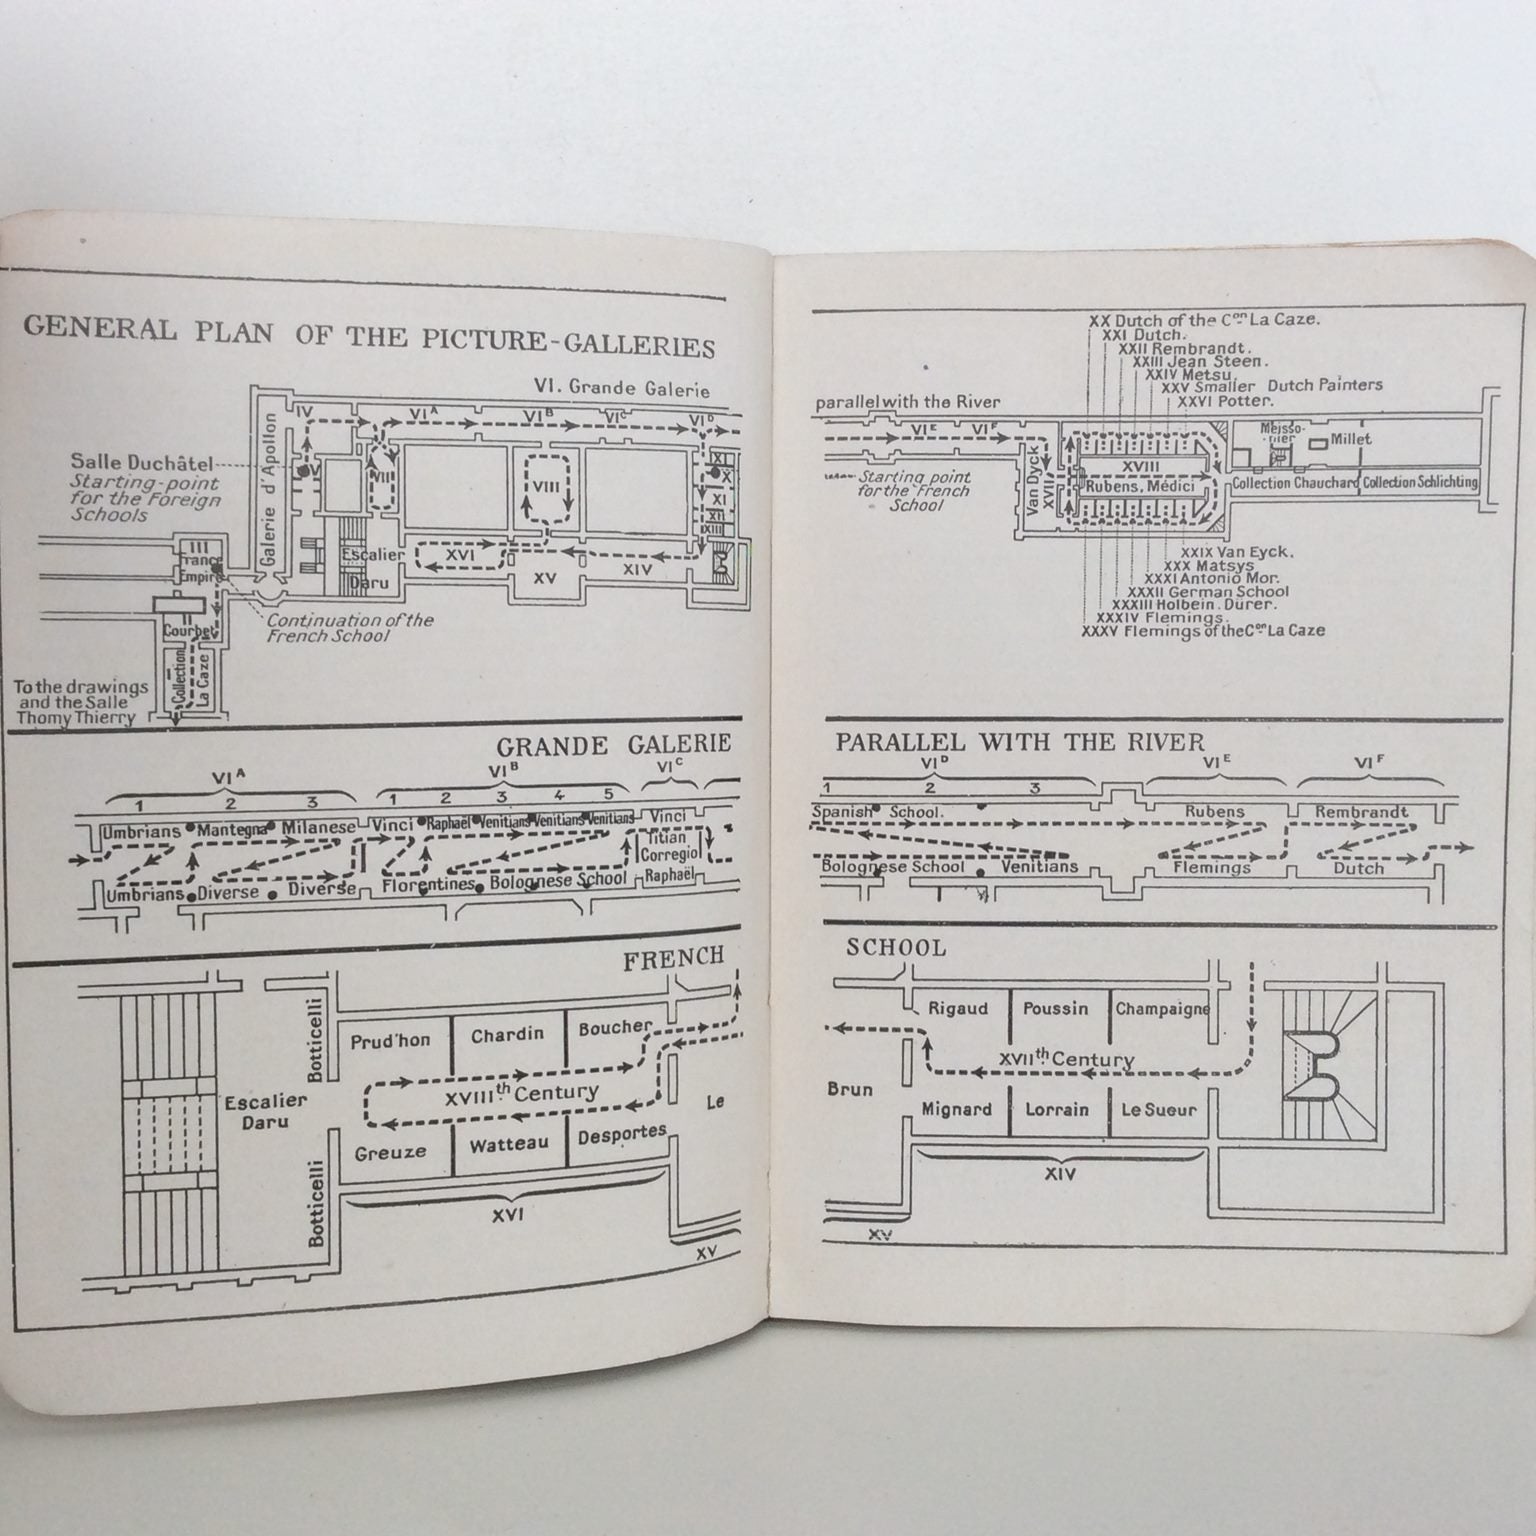 GENERAL PLAN OF THE PICTURE-GALLERIES
VI. Grande Galerie
IV
VI A
VI B
VI C
VI D
Salle Duchâtel
V
Starting-point
for the Foreign
Schools
Galerie d'Apollon
VII
VIII
XI
X
XI
XII
XIII
III
France
Empire
Escalier
Daru
XVI
XV
XIV
II
Courbet
Continuation of the
French School
I
Collection
La Caze
To the drawings
and the Salle
Thomy Thierry
XX Dutch of the Con La Caze.
XXI Dutch.
XXII Rembrandt.
XXIII Jean Steen.
XXIV Metsu.
XXV Smaller Dutch Painters
XXVI Potter.
parallel with the River
VI E
VI F
Starting point
for the French
School
Van Dyck
XVII
XVIII
Rubens, Médici
Meisso-
nier
Millet
Collection Chauchard
Collection Schlichting
XXIX Van Eyck.
XXX Matsys
XXXI Antonio Mor.
XXXII German School
XXXIII Holbein. Dürer.
XXXIV Flemings.
XXXV Flemings of the Con La Caze
GRANDE GALERIE
VI A
VI B
VI C
1 2 3 1 2 3 4 5
Umbrians Mantegna Milanese Vinci Raphaël Venitians Venitians Venitians Vinci
Titian
Corregio
Umbrians Diverse Diverse Florentines Bolognese School Raphaël
PARALLEL WITH THE RIVER
VI D
VI E
VI F
1 2 3
Spanish School. Rubens Rembrandt
Bolognese School Venitians Flemings Dutch
FRENCH
Botticelli
Prud'hon Chardin Boucher
XVIIIth Century
Escalier
Daru
Le
Greuze Watteau Desportes
Botticelli
XVI
XV
SCHOOL
Rigaud Poussin Champaigne
XVIIth Century
Brun
Mignard Lorrain Le Sueur
XIV
XV